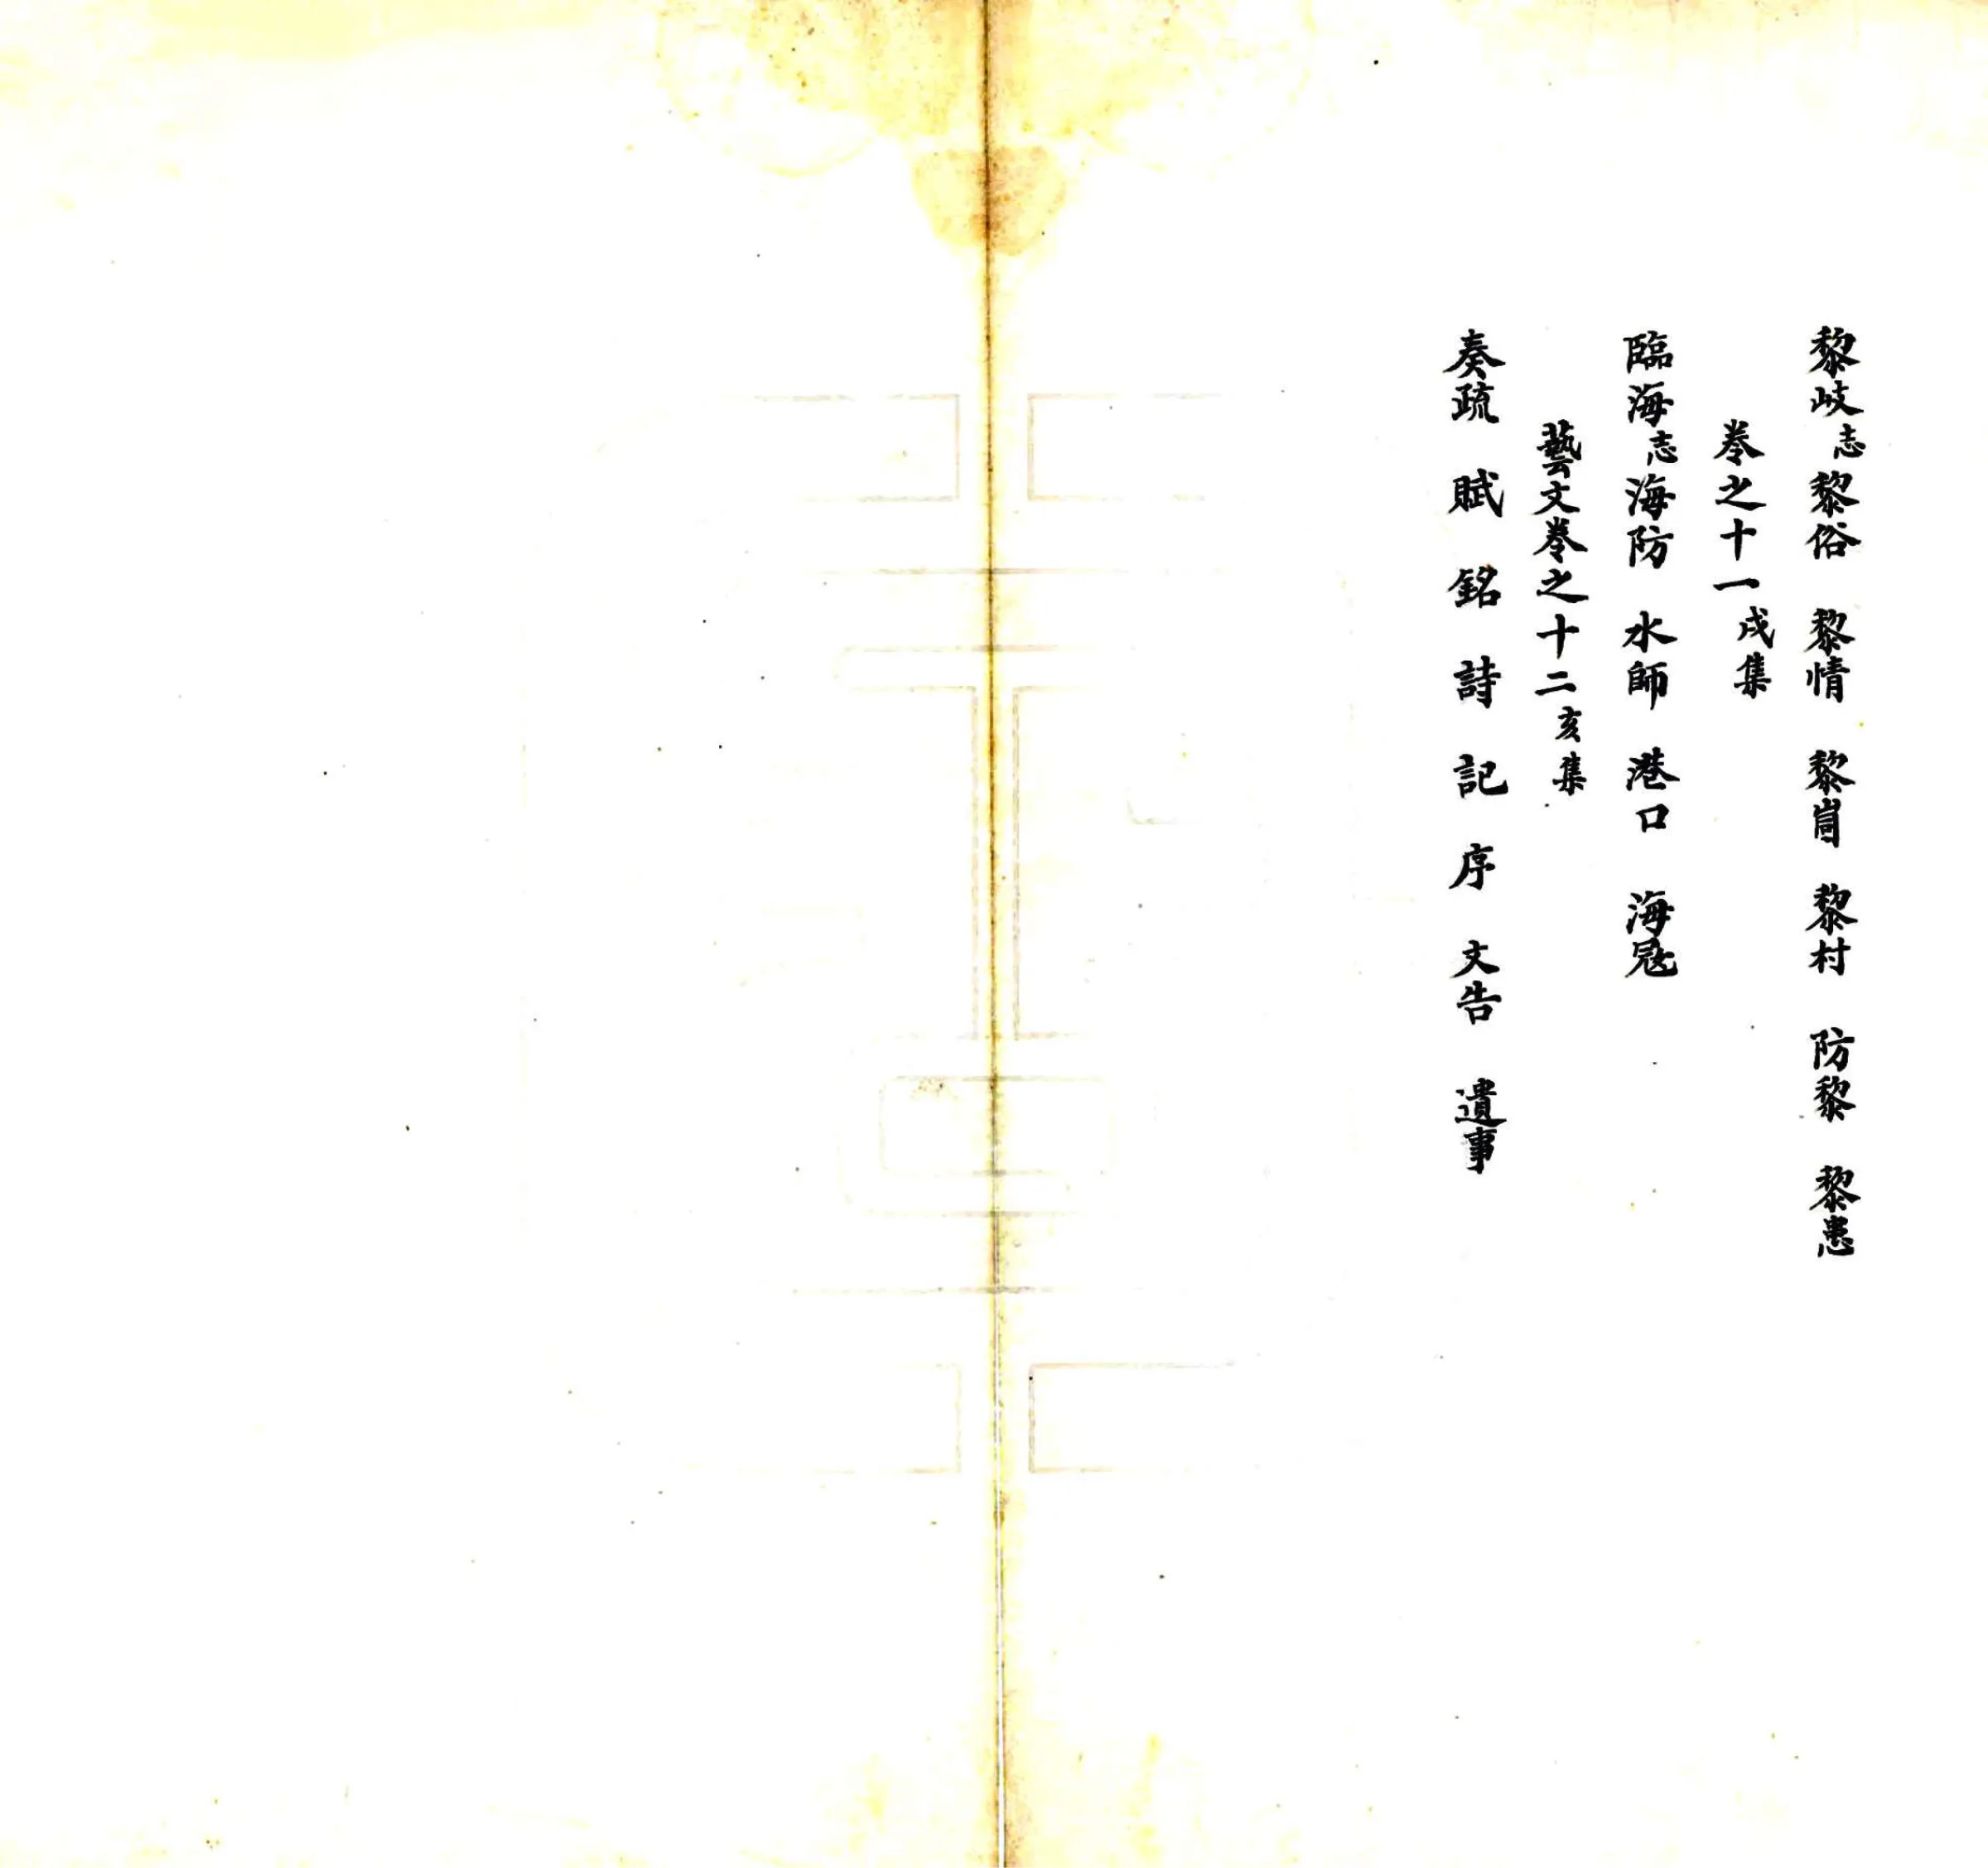 黎岐志黎俗 黎情 黎崗 黎村 防黎 黎患
卷之十一戌集
臨海志海防 水師 港口 海寇
藝文卷之十二亥集
奏疏 賦 銘 詩 記 序 文告 遺事